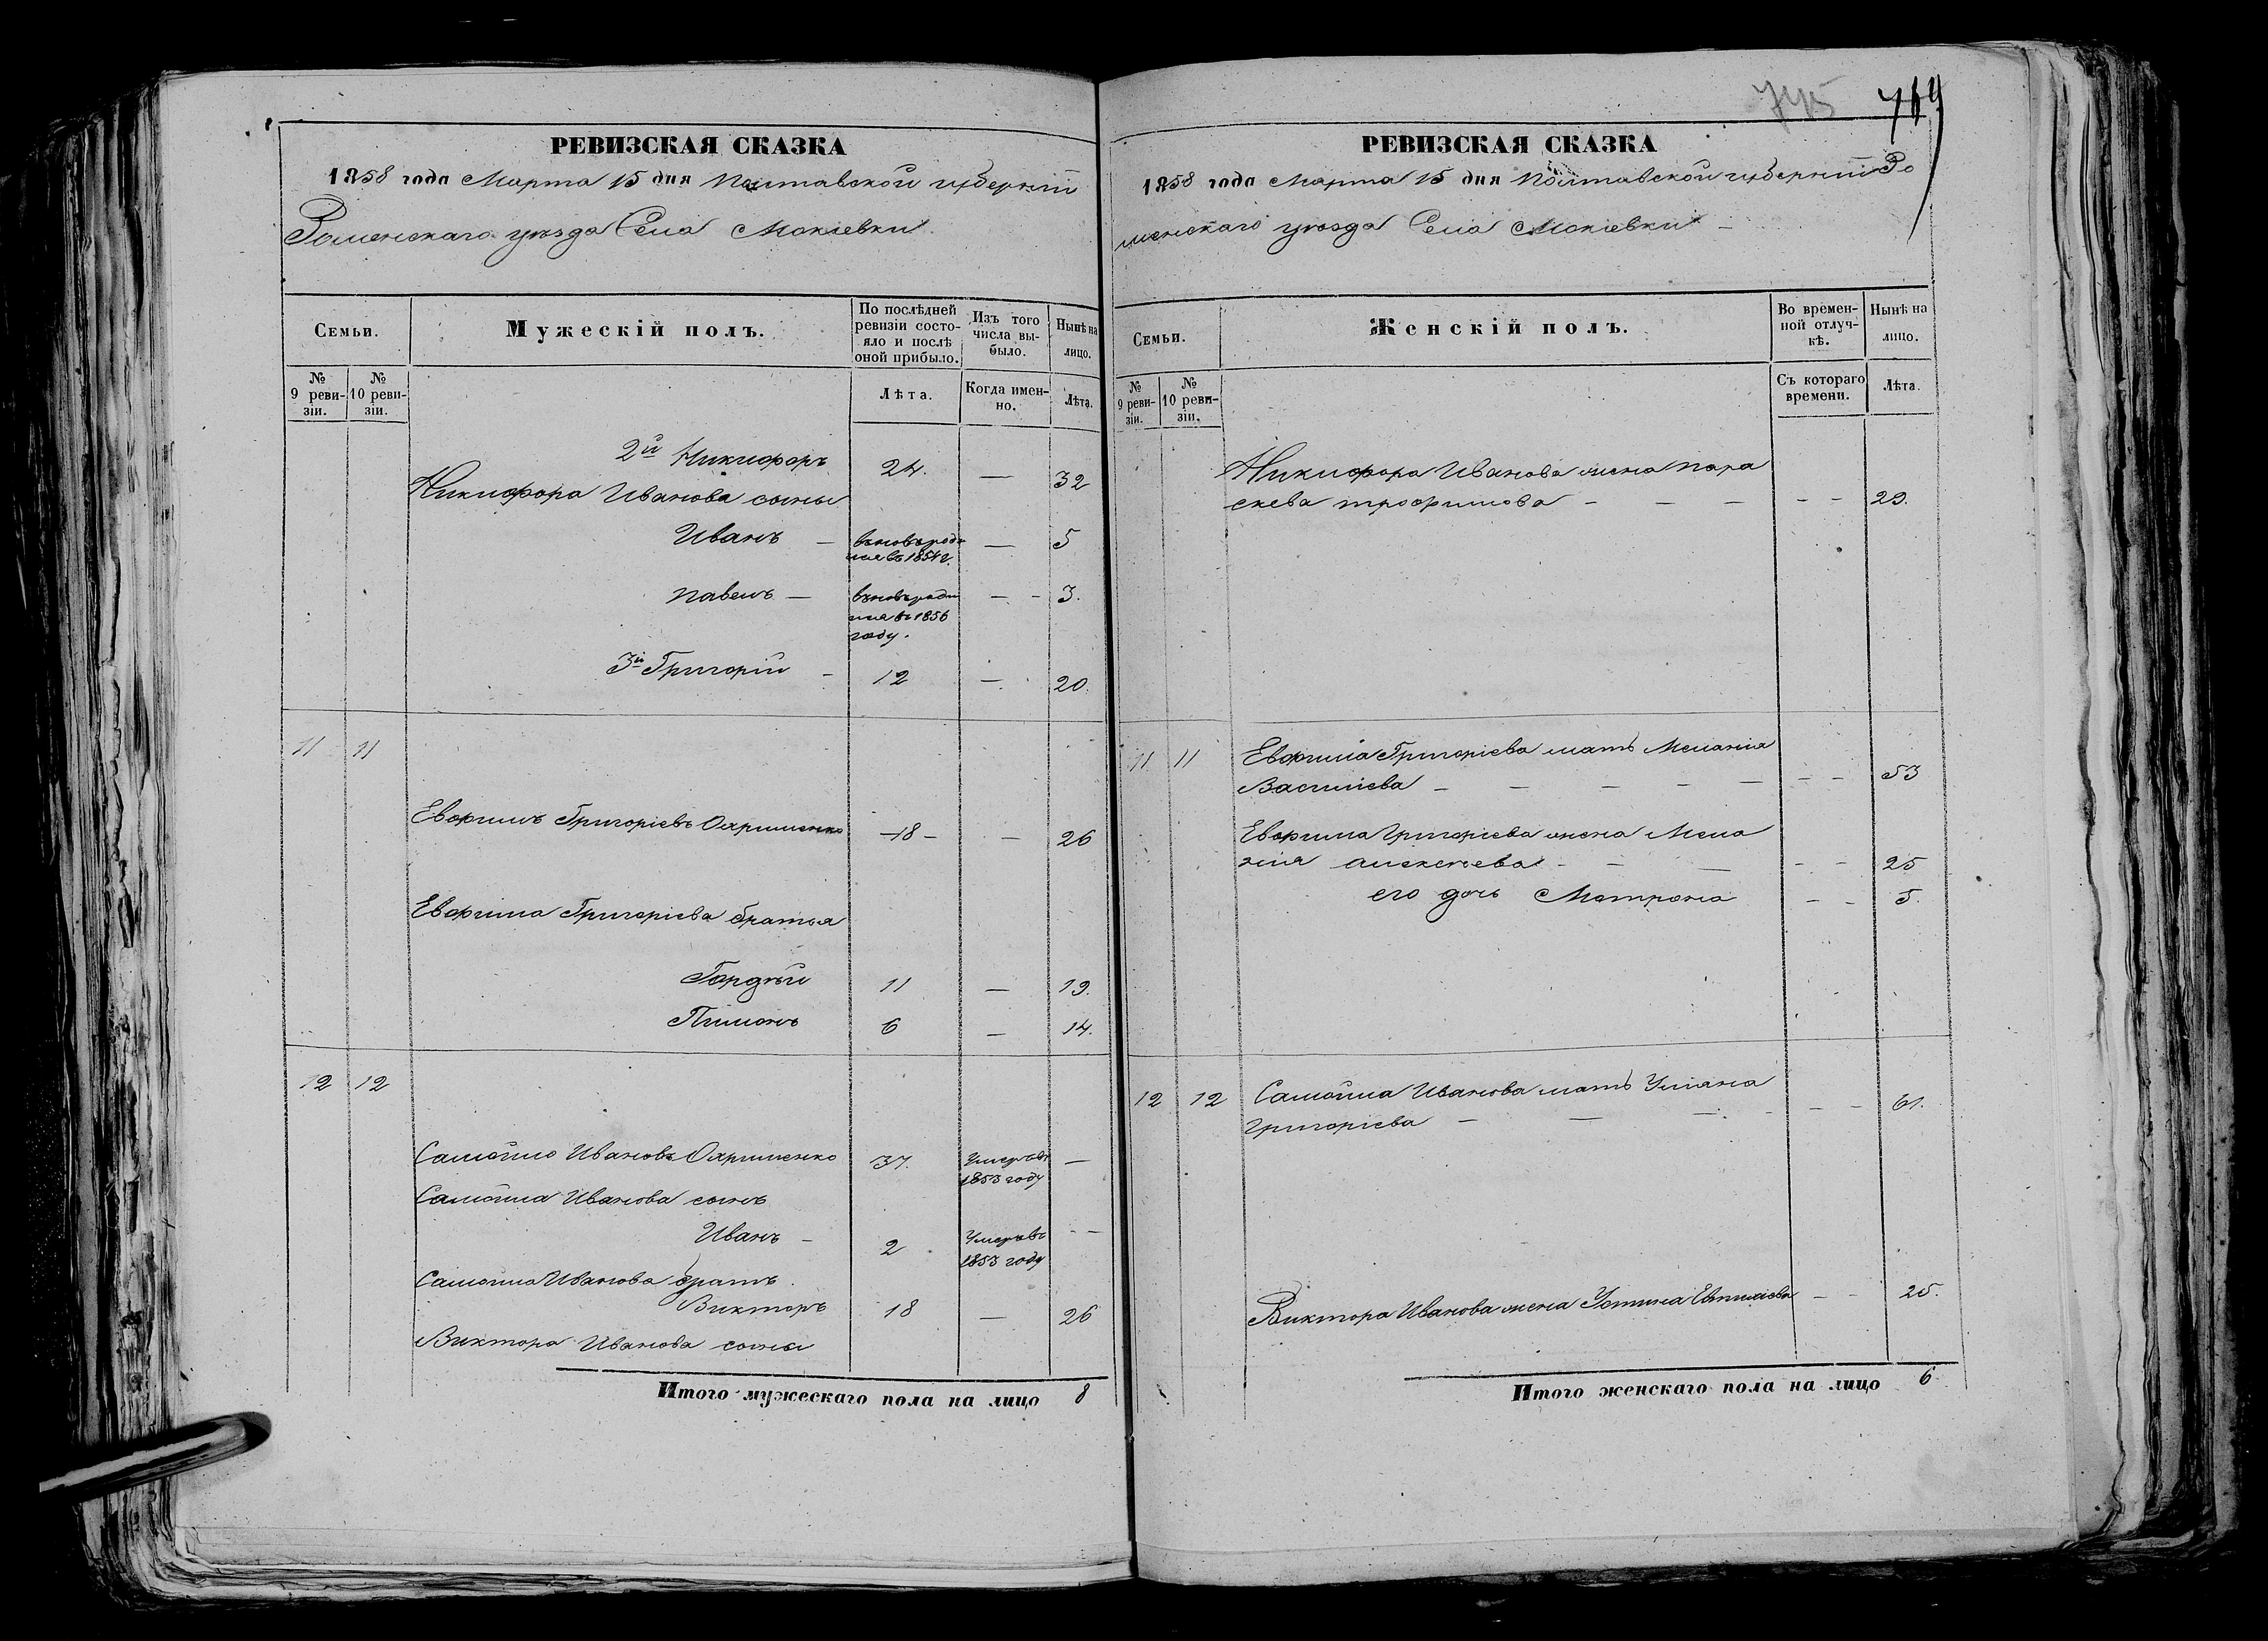 РЕВИЗСКАЯ СКАЗКА
1858 года Марта 15 дня Полтавской губерніи
Роменскаго уѣзда Села Мокіевки
Семьи.
Мужескій полъ.
По послѣдней ревизіи состояло и послѣ оной прибыло.
Изъ того числа выбыло.
Нынѣ на лицо.
№ 9 ревизіи.
№ 10 ревизіи.
Лѣта.
Когда именно.
Лѣта.
2й Никифоръ 24. — 32
Никифора Иванова сыны
Иванъ — вновь роди 5
лся въ 1854 г.
Павелъ — вновь роди — - 3.
лся въ 1856
году.
3й Григорій - 12 — 20.
11 11
Евфимъ Григоріевъ Охрименко —18— — 26
Евфима Григоріева братья
Гордѣй 11 — 19.
Пимонъ 6 — 14.
12 12
Самойло Ивановъ Охрименко 37. Умеръ въ —
1853 году
Самойла Иванова сынъ
Иванъ - 2 Умеръ въ - -
1853 году
Самойла Иванова братъ.
Викторъ 18 — 26
Виктора Иванова сыны
Итого мужескаго пола на лицо 8
745 749
РЕВИЗСКАЯ СКАЗКА
1858 года Марта 15 дня Полтавской губерніи Ро
менскаго уѣзда Села Мокіевки —
Семьи.
Женскій полъ.
Во временной отлучкѣ.
Нынѣ на лицо.
№ 9 ревизіи.
№ 10 ревизіи.
Съ котораго времени.
Лѣта.
Никифора Иванова жена Пара
скева Трофимова - — — - - 29.
11 11 Евфима Григоріева мать Меланія
Василіева — — — — — - - 53
Евфима Григоріева жена Мела
нія Алексѣева - — — - - 25
его дочь Матрона - - 5.
12 12 Самойла Иванова мать Уліана
Григоріева — — — - - - 61.
Виктора Иванова жена Устина - - 25.
Итого женскаго пола на лицо 6